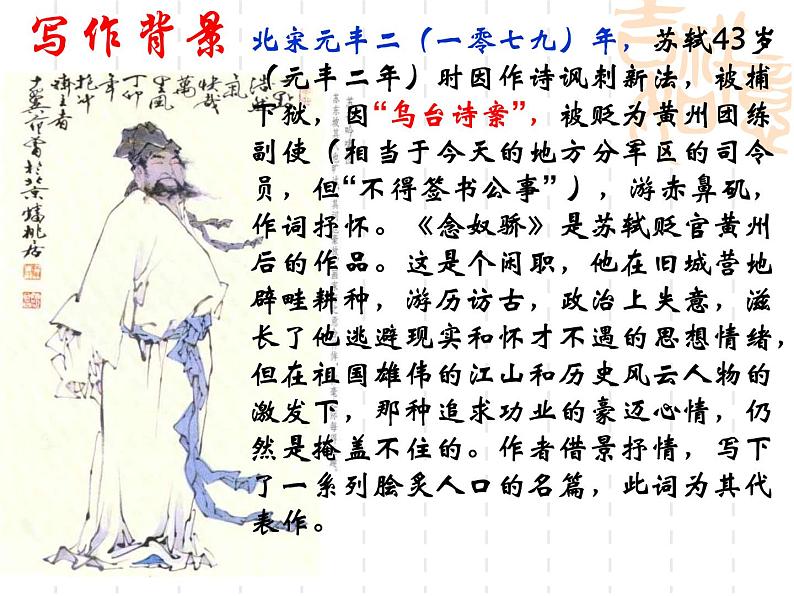 写作背景
北宋元丰二（一零七九）年，苏轼43岁
（元丰二年）时因作诗讽刺新法，被捕
下狱，因“乌台诗案”，被贬为黄州团练
副使（相当于今天的地方分军区的司令
员，但“不得签书公事”），游赤鼻矶，
作词抒怀。《念奴骄》是苏轼贬官黄州
后的作品。这是个闲职，他在旧城营地
辟畦耕种，游历访古，政治上失意，滋
长了他逃避现实和怀才不遇的思想情绪，
但在祖国雄伟的江山和历史风云人物的
激发下，那种追求功业的豪迈心情，仍
然是掩盖不住的。作者借景抒情，写下
了一系列脍炙人口的名篇，此词为其代
表作。